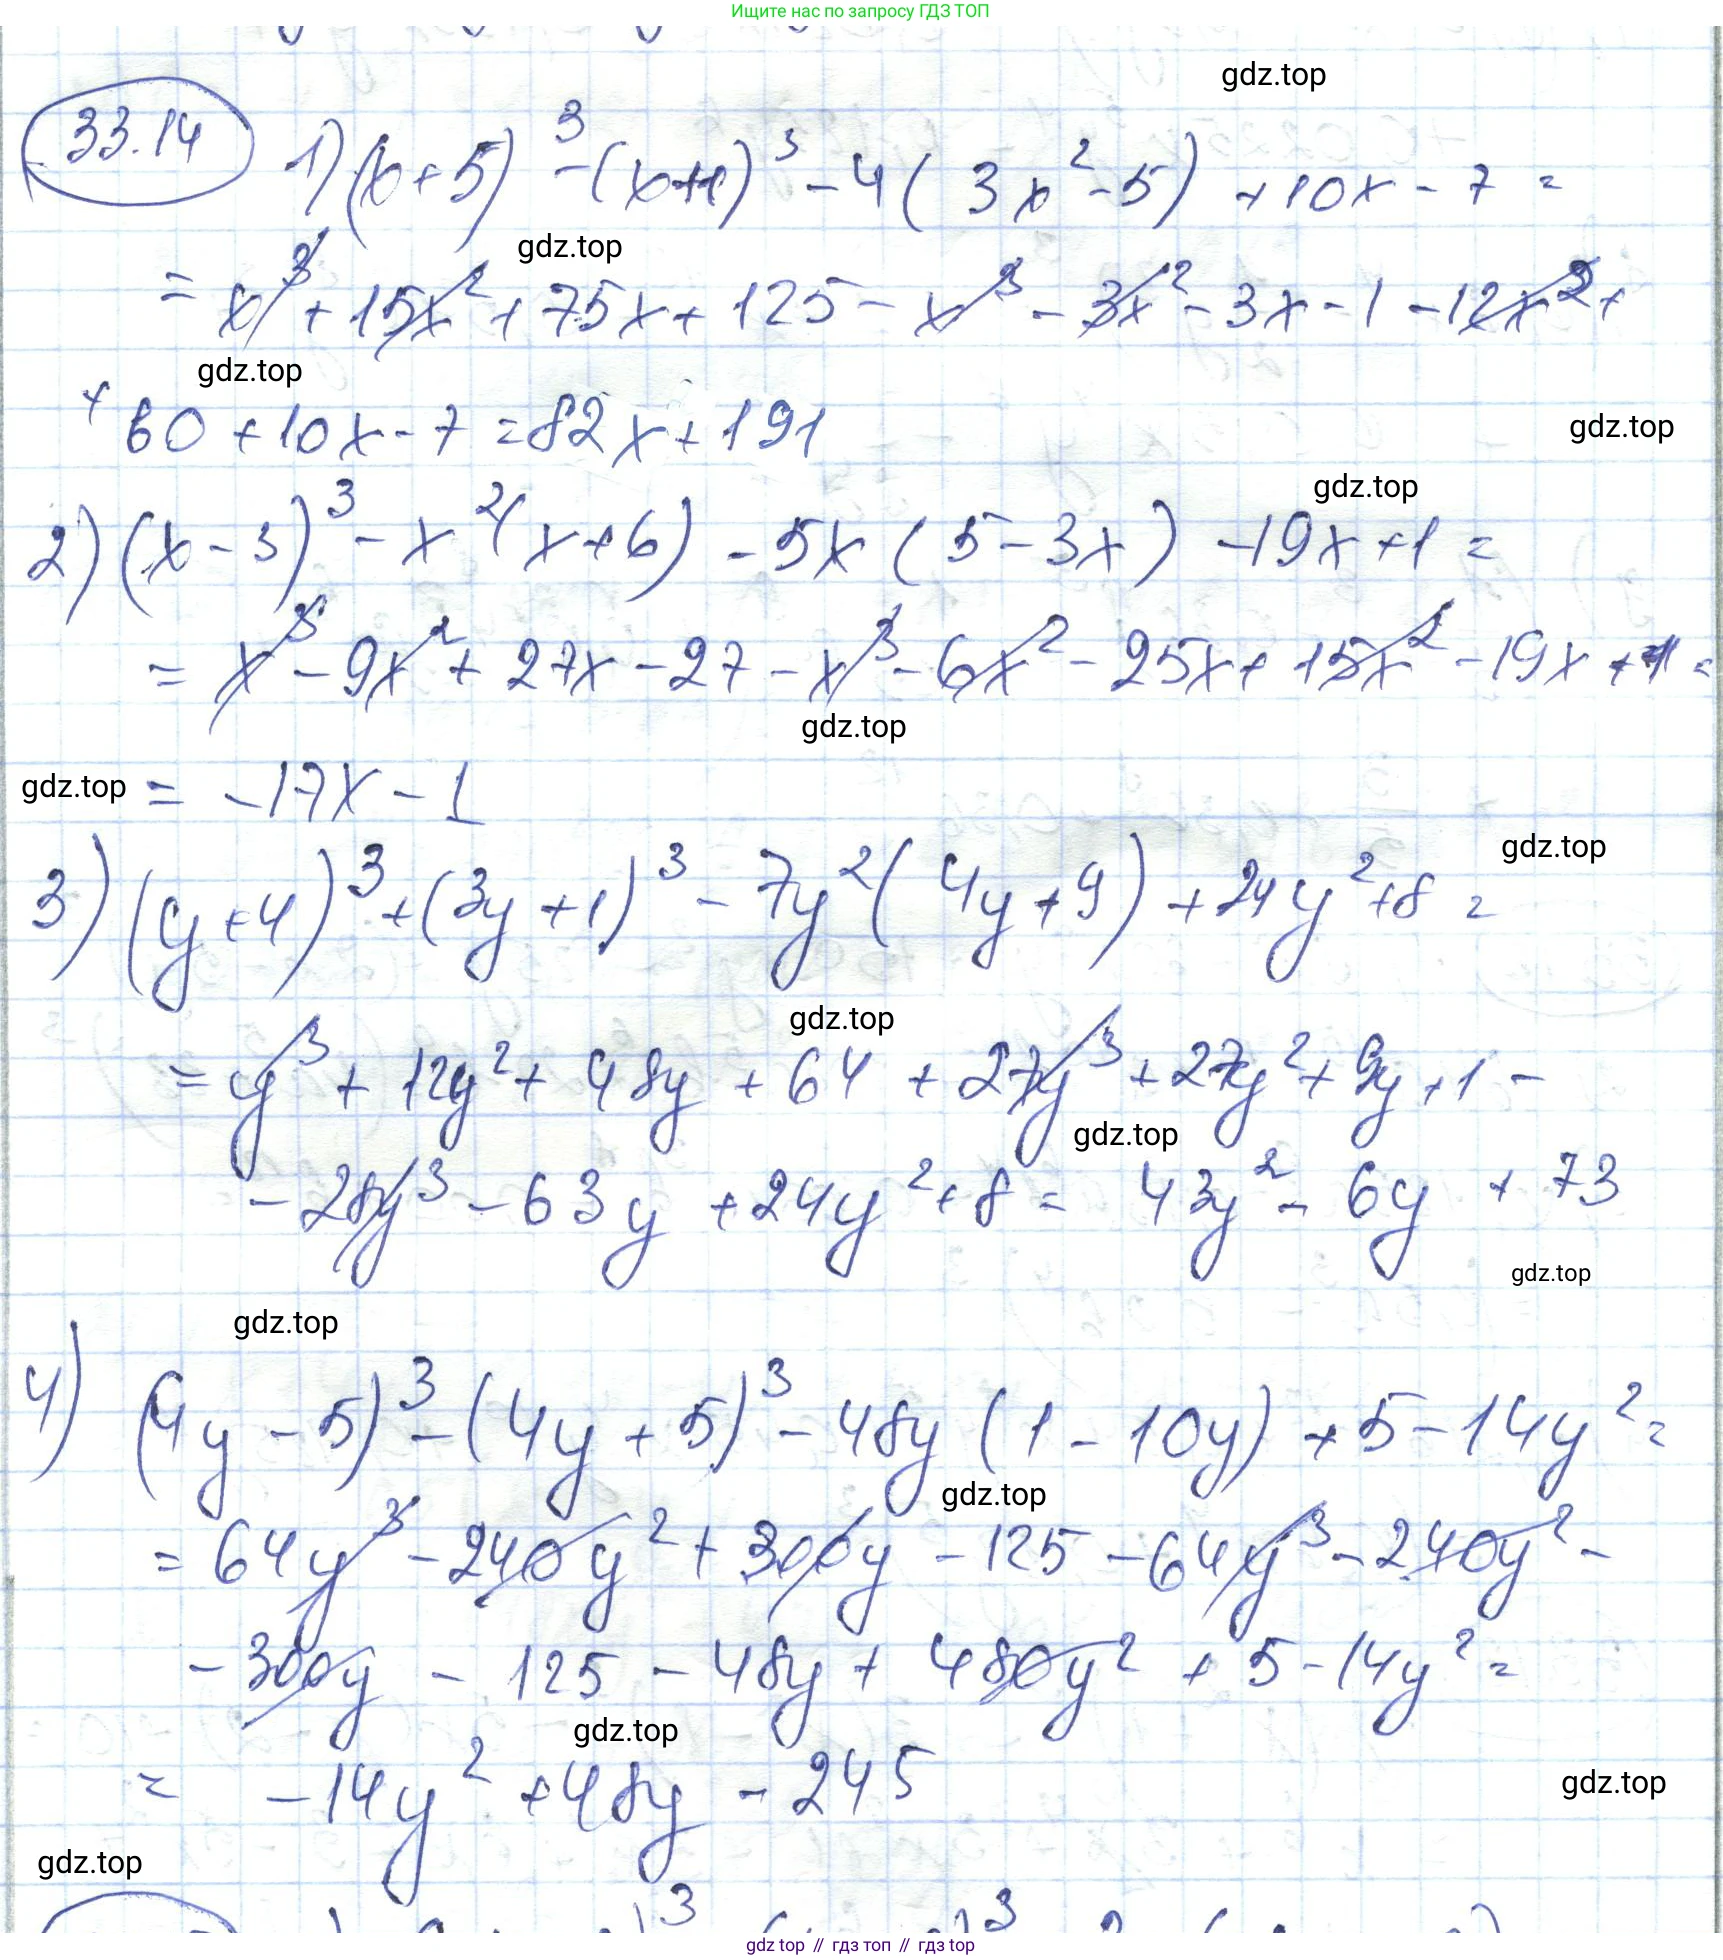 Ищите нас по запросу ГДЗ ТОП
gdz.top
33.14 1) (x+5)³-(x+1)³-4(3x²-5)+10x-7=
gdz.top
=x³+15x²+75x+125-x³-3x²-3x-1-12x²+
gdz.top
+60+10x-7=82x+191
gdz.top
gdz.top
2) (x-3)³-x²(x+6)-5x(5-3x)-19x+1=
=x³-9x²+27x-27-x³-6x²-25x+15x²-19x+1=
gdz.top
gdz.top
=-17x-1
gdz.top
3) (y+4)³+(3y+1)³-7y²(4y+9)+24y²+8=
gdz.top
=y³+12y²+48y+64+27y³+27y²+9y+1-
gdz.top
-28y³-63y+24y²+8=43y²-6y+73
gdz.top
gdz.top
4) (4y-5)³-(4y+5)³-48y(1-10y)+5-14y²=
gdz.top
=64y³-240y²+300y-125-64y³-240y²-
-300y-125-48y+480y²+5-14y²=
gdz.top
=-14y²+48y-245
gdz.top
gdz.top
gdz top // гдз топ // gdz top